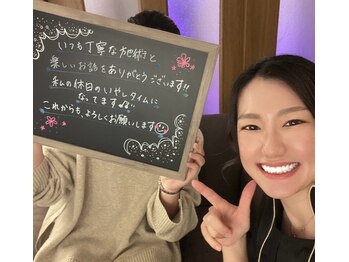 いつも丁寧な施術と
楽しいお話をありがとうございます!!
私の休日のいやしタイムに
なってます♪♪
これからも、よろしくお願いします